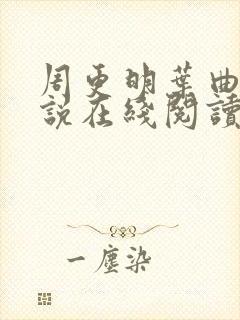 周更明葉曲
說在綫閱讀
一塵染